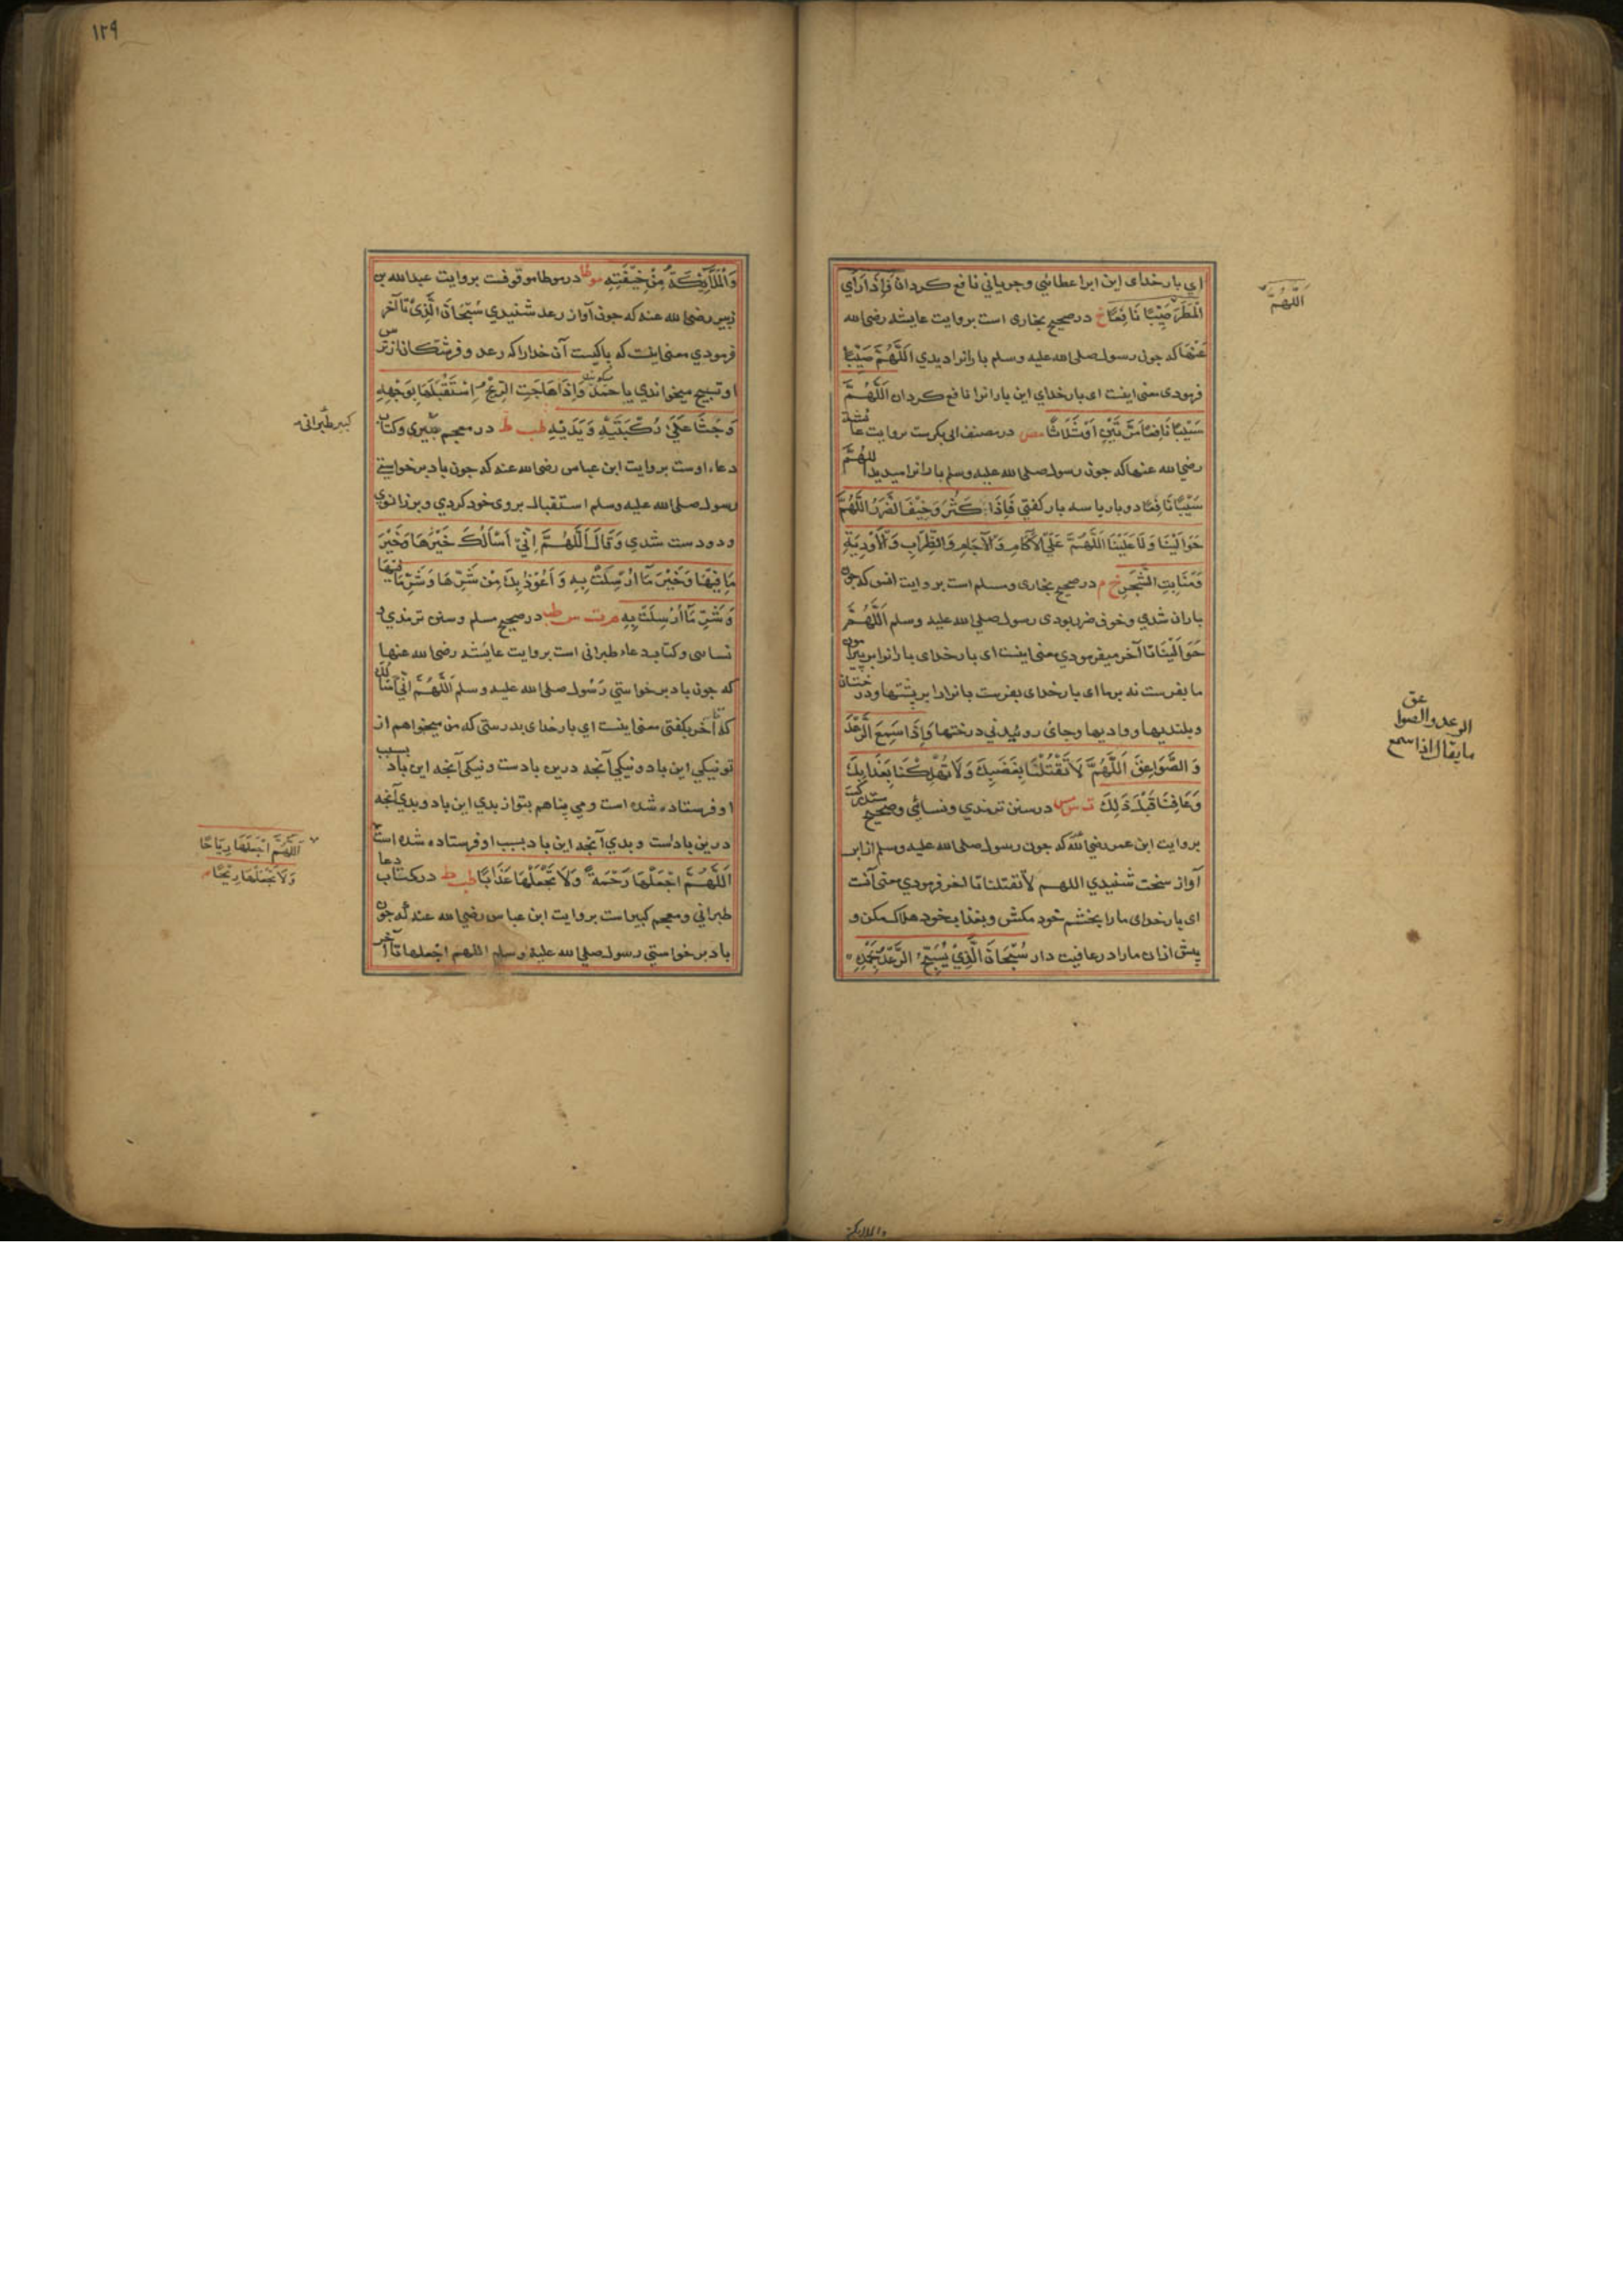 اي بار خداى اين ابرا عطائى وجرياني نافع كردان فَإِذَا رَأَي
الْمَطَرَ صَيِّبًا نَافِعًا خ در صحيح بخارى است بروايت عايشه رضى الله
عَنْهَا كه چون رسول صلى الله عليه وسلم بارانرا ديدي اَللَّهُمَّ صَيِّبًا
فرمودى معنى اينست اى بار خداي اين بارانرا نافع كردان اَللَّهُمَّ
سَيْبًا نَافِعًا مَرَّتَيْنِ اَوْ ثَلَاثًا مص در مصنف ابى بكرست بروايت عائشه
رضي الله عنها كه جون رسول صلى الله عليه وسلم بارانرا ميديد اللهُمَّ
سَيْبًا نَافِعًا دو بار يا سه بار كفتي فَإِذَا كَثُرَ وَخِيْفَ الضَّرَرُ اللَّهُمَّ
حَوَالَيْنَا وَلَا عَلَيْنَا اَللَّهُمَّ عَلَي الْآكَامِ وَالْآجَامِ وَالظِّرَابِ وَالْأَوْدِيَةِ
وَمَنَابِتِ الشَّجَرِ خ م در صحيح بخارى ومسلم است بروايت انس كه جون
باران شدي وخوف ضرر بودى رسول صلى الله عليه وسلم اَللَّهُمَّ
حَوَالَيْنَا تا آخر ميفرمودي معنى اينست اى بار خداى بارانرا بر پيرامون
ما بفرست نه بر ما اى بار خداى بفرست بارانرا بر پشتها ودرختان
وبلنديها وواديها وجاى روئيدني درختها وَإِذَا سَمِعَ الرَّعْدَ
وَ الصَّوَاعِقَ اَللَّهُمَّ لَا تَقْتُلْنَا بِغَضَبِكَ وَلَا تُهْلِكْنَا بِعَذَابِكَ
وَعَافِنَا قَبْلَ ذَلِكَ ت س مس در سنن ترمذي ونسائي وصحيح مستدركست
بروايت ابن عمر رضي الله كه جون رسول صلى الله عليه وسلم از ابر
آواز سخت شنيدي اللهم لا تقتلنا تا اخر فرمودي معنى آنست
اى بار خداى ما را بخشم خود مكش وبعذاب خود هلاك مكن و
پيش ازان ما را در عافيت دار سُبْحَانَ الَّذِيْ يُسَبِّحُ الرَّعْدُ بِحَمْدِهِ
اَللّٰهُمَّ
عق
الرعد والصوا
ما يقال اذا سمع
والملايكة
١٢٩
وَالْمَلَآئِكَةُ مِنْ خِيْفَتِهِ موطا در موطا موقوفست بروايت عبدالله بن
زبير رضى الله عنه كه جون آواز رعد شنيدي سُبْحَانَ الَّذِيْ تا آخر
فرمودي معنى اينست كه پاكيست آن خدا را كه رعد وفرشتكان از ترس
او تسبيح ميخوانندي با حمد وَإِذَا هَاجَتِ الرِّيْحُ اِسْتَقْبَلَهَا بِوَجْهِهِ
وَجَثَا عَلَى رُكْبَتَيْهِ وَيَدَيْهِ طب ط در معجم كبيرى وكتاب
دعاء اوست بروايت ابن عباس رضى الله عنه كه جون باد برخواستي
رسول صلى الله عليه وسلم استقبال بروى خود كردي وبر زانوي
ودو دست شدي وَقَالَ اَللَّهُمَّ اِنِّيْ اَسْأَلُكَ خَيْرَهَا وَخَيْرَ
مَا فِيْهَا وَخَيْرَ مَآ اُرْسِلَتْ بِهِ وَ اَعُوْذُ بِكَ مِنْ شَرِّهَا وَشَرِّ مَا فِيْهَا
وَشَرِّ مَآ اُرْسِلَتْ بِهِ م ت س طب در صحيح مسلم وسنن ترمذي
نسائى وكتاب دعاء طبرانى است بروايت عايشه رضى الله عنها
كه جون باد برخواستي رسول صلى الله عليه وسلم اَللَّهُمَّ اِنِّي اَسْاَلُ
كَ تا آخر بكفتى معنى اينست اي بار خداى بدرستى كه من ميخواهم از
تو نيكي اين باد ونيكي آنچه درين بادست ونيكى آنچه اين باد بسبب
او فرستاده شده است ومي پناهم بتو از بدي اين باد وبدي آنچه
درين بادست وبدي آنچه اين باد بسبب او فرستاده شده است
اَللَّهُمَّ اجْعَلْهَا رَحْمَةً وَلَا تَجْعَلْهَا عَذَابًا طب ط در كتاب دعا
طبراني ومعجم كبير است بروايت ابن عباس رضي الله عنه كه جون
باد برخواستي رسول صلى الله عليه وسلم اللهم اجعلها تا آخر
كبير طبرانى
اَللَّهُمَّ اجْعَلْهَا رِيَاحًا
وَلَا تَجْعَلْهَا رِيْحًا